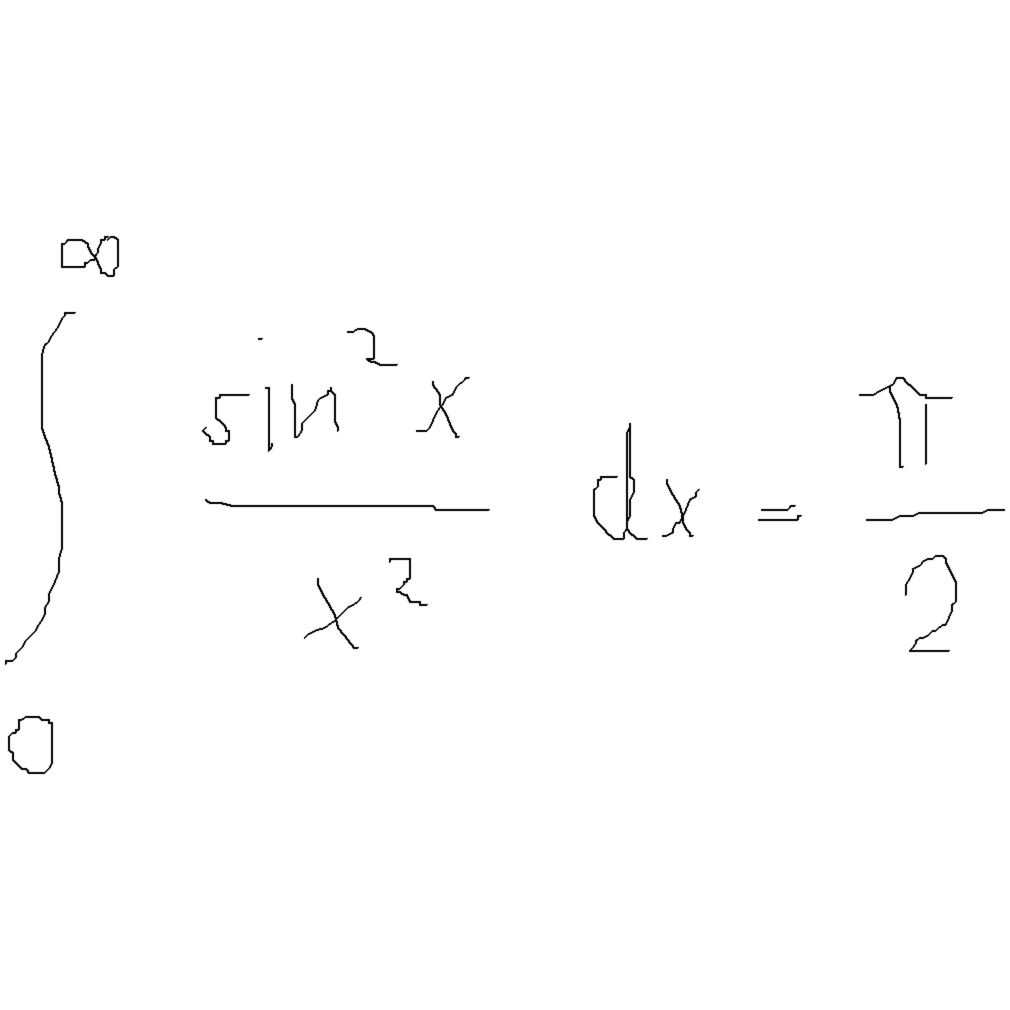 ∫₀^∞ sin²x / x² dx = π / 2